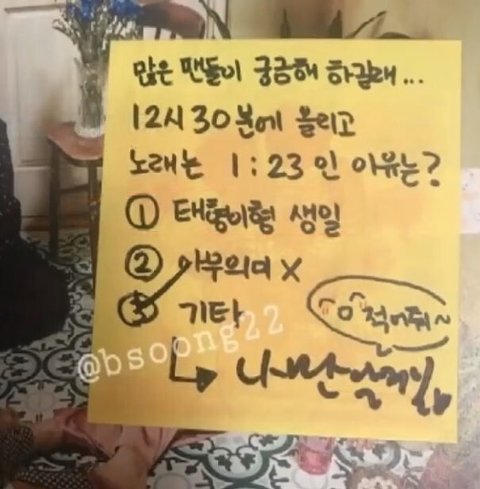 많은 팬들이 궁금해 하길래...
12시 30분에 올리고
노래는 1:23 인 이유는?
① 태형이형 생일
② 아무의미 X
③ 기타
^ㅁ^ 적어줘~
↳ 나만 알거임
@bsoong22